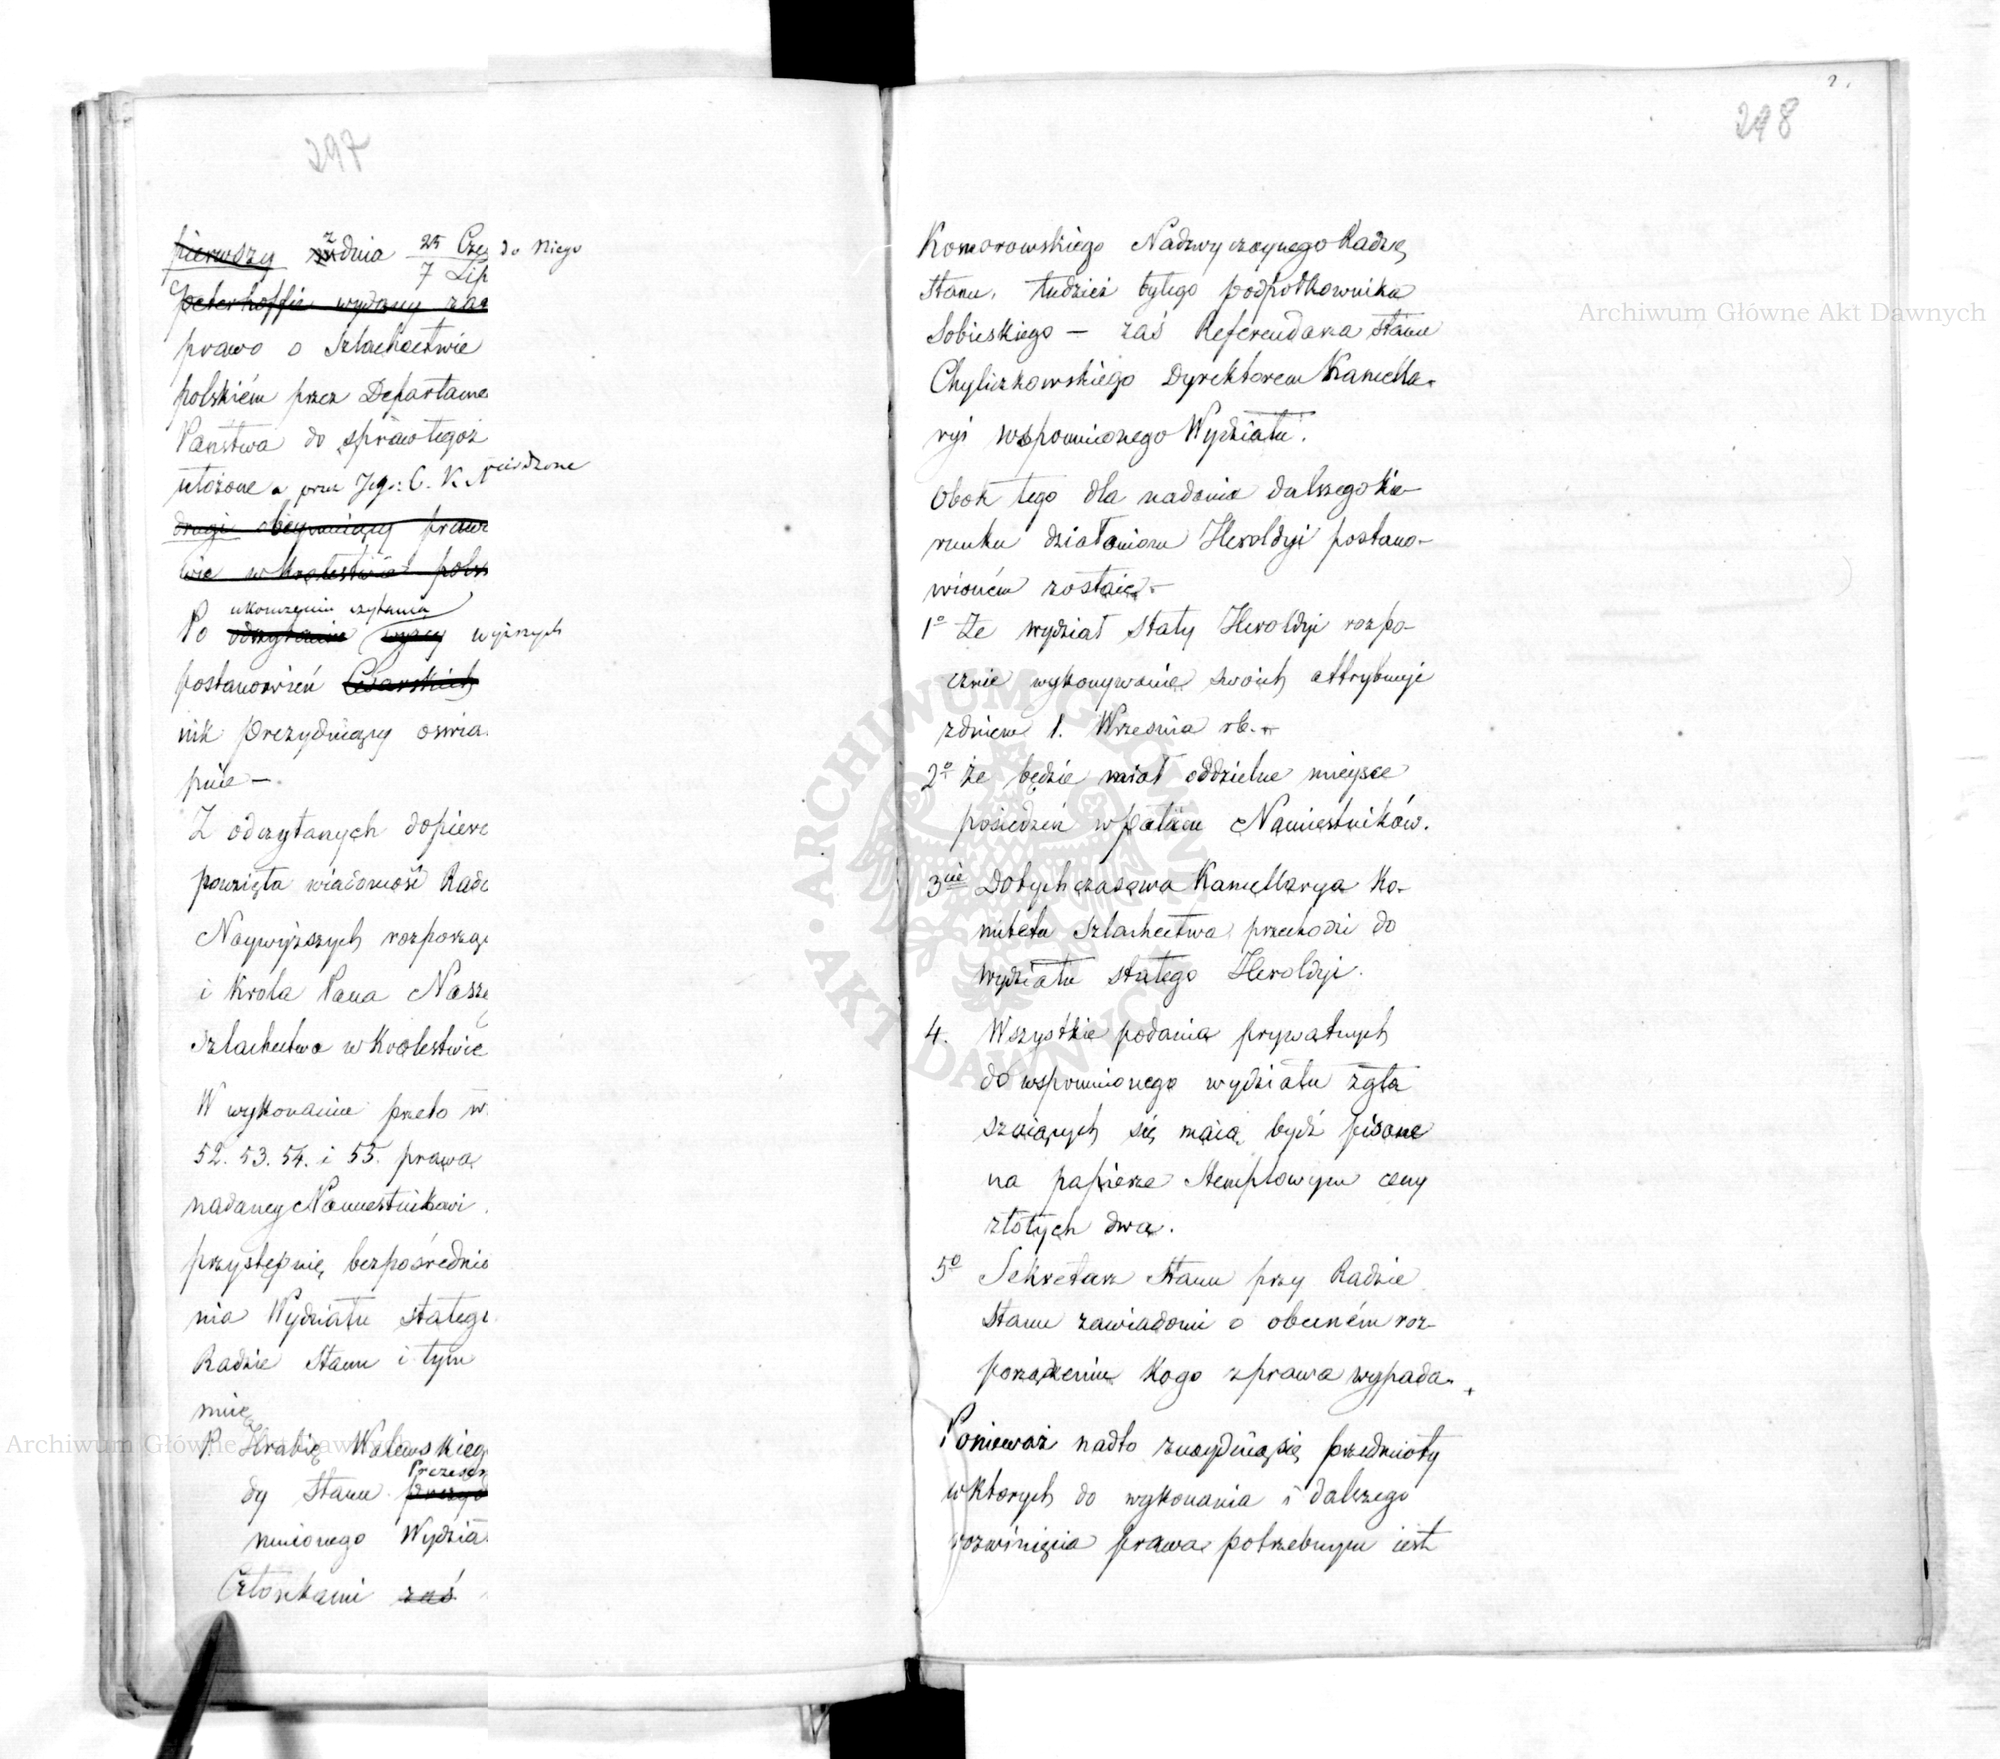 297
pierwszy z dnia 25 Cze do Niego
7 Lip
Peterhoffie wydany zas
prawo o Szlachectwie
polskiém przez Departame
Państwa do spraw tegoż
ułożone a przez Jego: C. K.
drugi obeymuiący praw
wie w Królestwie pols
ukończeniu czytania
Po odczytaniu wyżey wyższych
postanowień Cesarskich
nik Prezyduiący oswia
puie —
Z odczytanych dopiero
powzięła wiadomość Rada
Naywyższych rozporzą
i Króla Pana Nasze
Szlachectwa w Królestwie
W wykonaniu przeto w
52. 53. 54. i 55. prawa
nadaney Namiestnikowi
przystępuię bezpośrednio
nia Wydziału stałego
Radzie Stanu i tym
nuię
P. Hrabię Walewskieg
Prezesem
dy Stanu
nionego Wydzia
Członkami zaś
2.
298
Komorowskiego Nadzwyczaynego Radzcę
Stanu, tudzież byłego podpółkownika
Sobieskiego — zaś Referendarza Stanu
Chyliczkowskiego Dyrektorem Kancella-
ryi wspomnionego Wydziału.
Obok tego dla nadania dalszego kie-
runku działaniom Heroldyi postano-
wioném zostaie —
1º Że wydział stały Heroldyi rozpo-
cznie wykonywanie swoich attrybucyi
z dniem 1. Września rb. —
2º że będzie miał oddzielne mieysce
posiedzeń w pałacu Namiestników.
3cie Dotychczasowa Kancellarya Ko-
mitetu Szlachectwa przechodzi do
Wydziału stałego Heroldyi.
4. Wszystkie podania prywatnych
do wspomnionego wydziału zgła
szaiących się maią bydź pisane
na papierze stemplowym ceny
złotych dwa.
5º Sekretarz Stanu przy Radzie
Stanu zawiadomi o obecném roz-
porządzeniu kogo z prawa wypada.
Ponieważ nadto znayduią się przedmioty
w których do wykonania i dalszego
rozwinięcia prawa potrzebnym iest
Archiwum Główne Akt Dawnych
Archiwum Główne Akt Dawnych
ARCHIWUM GŁÓWNE AKT DAWNYCH